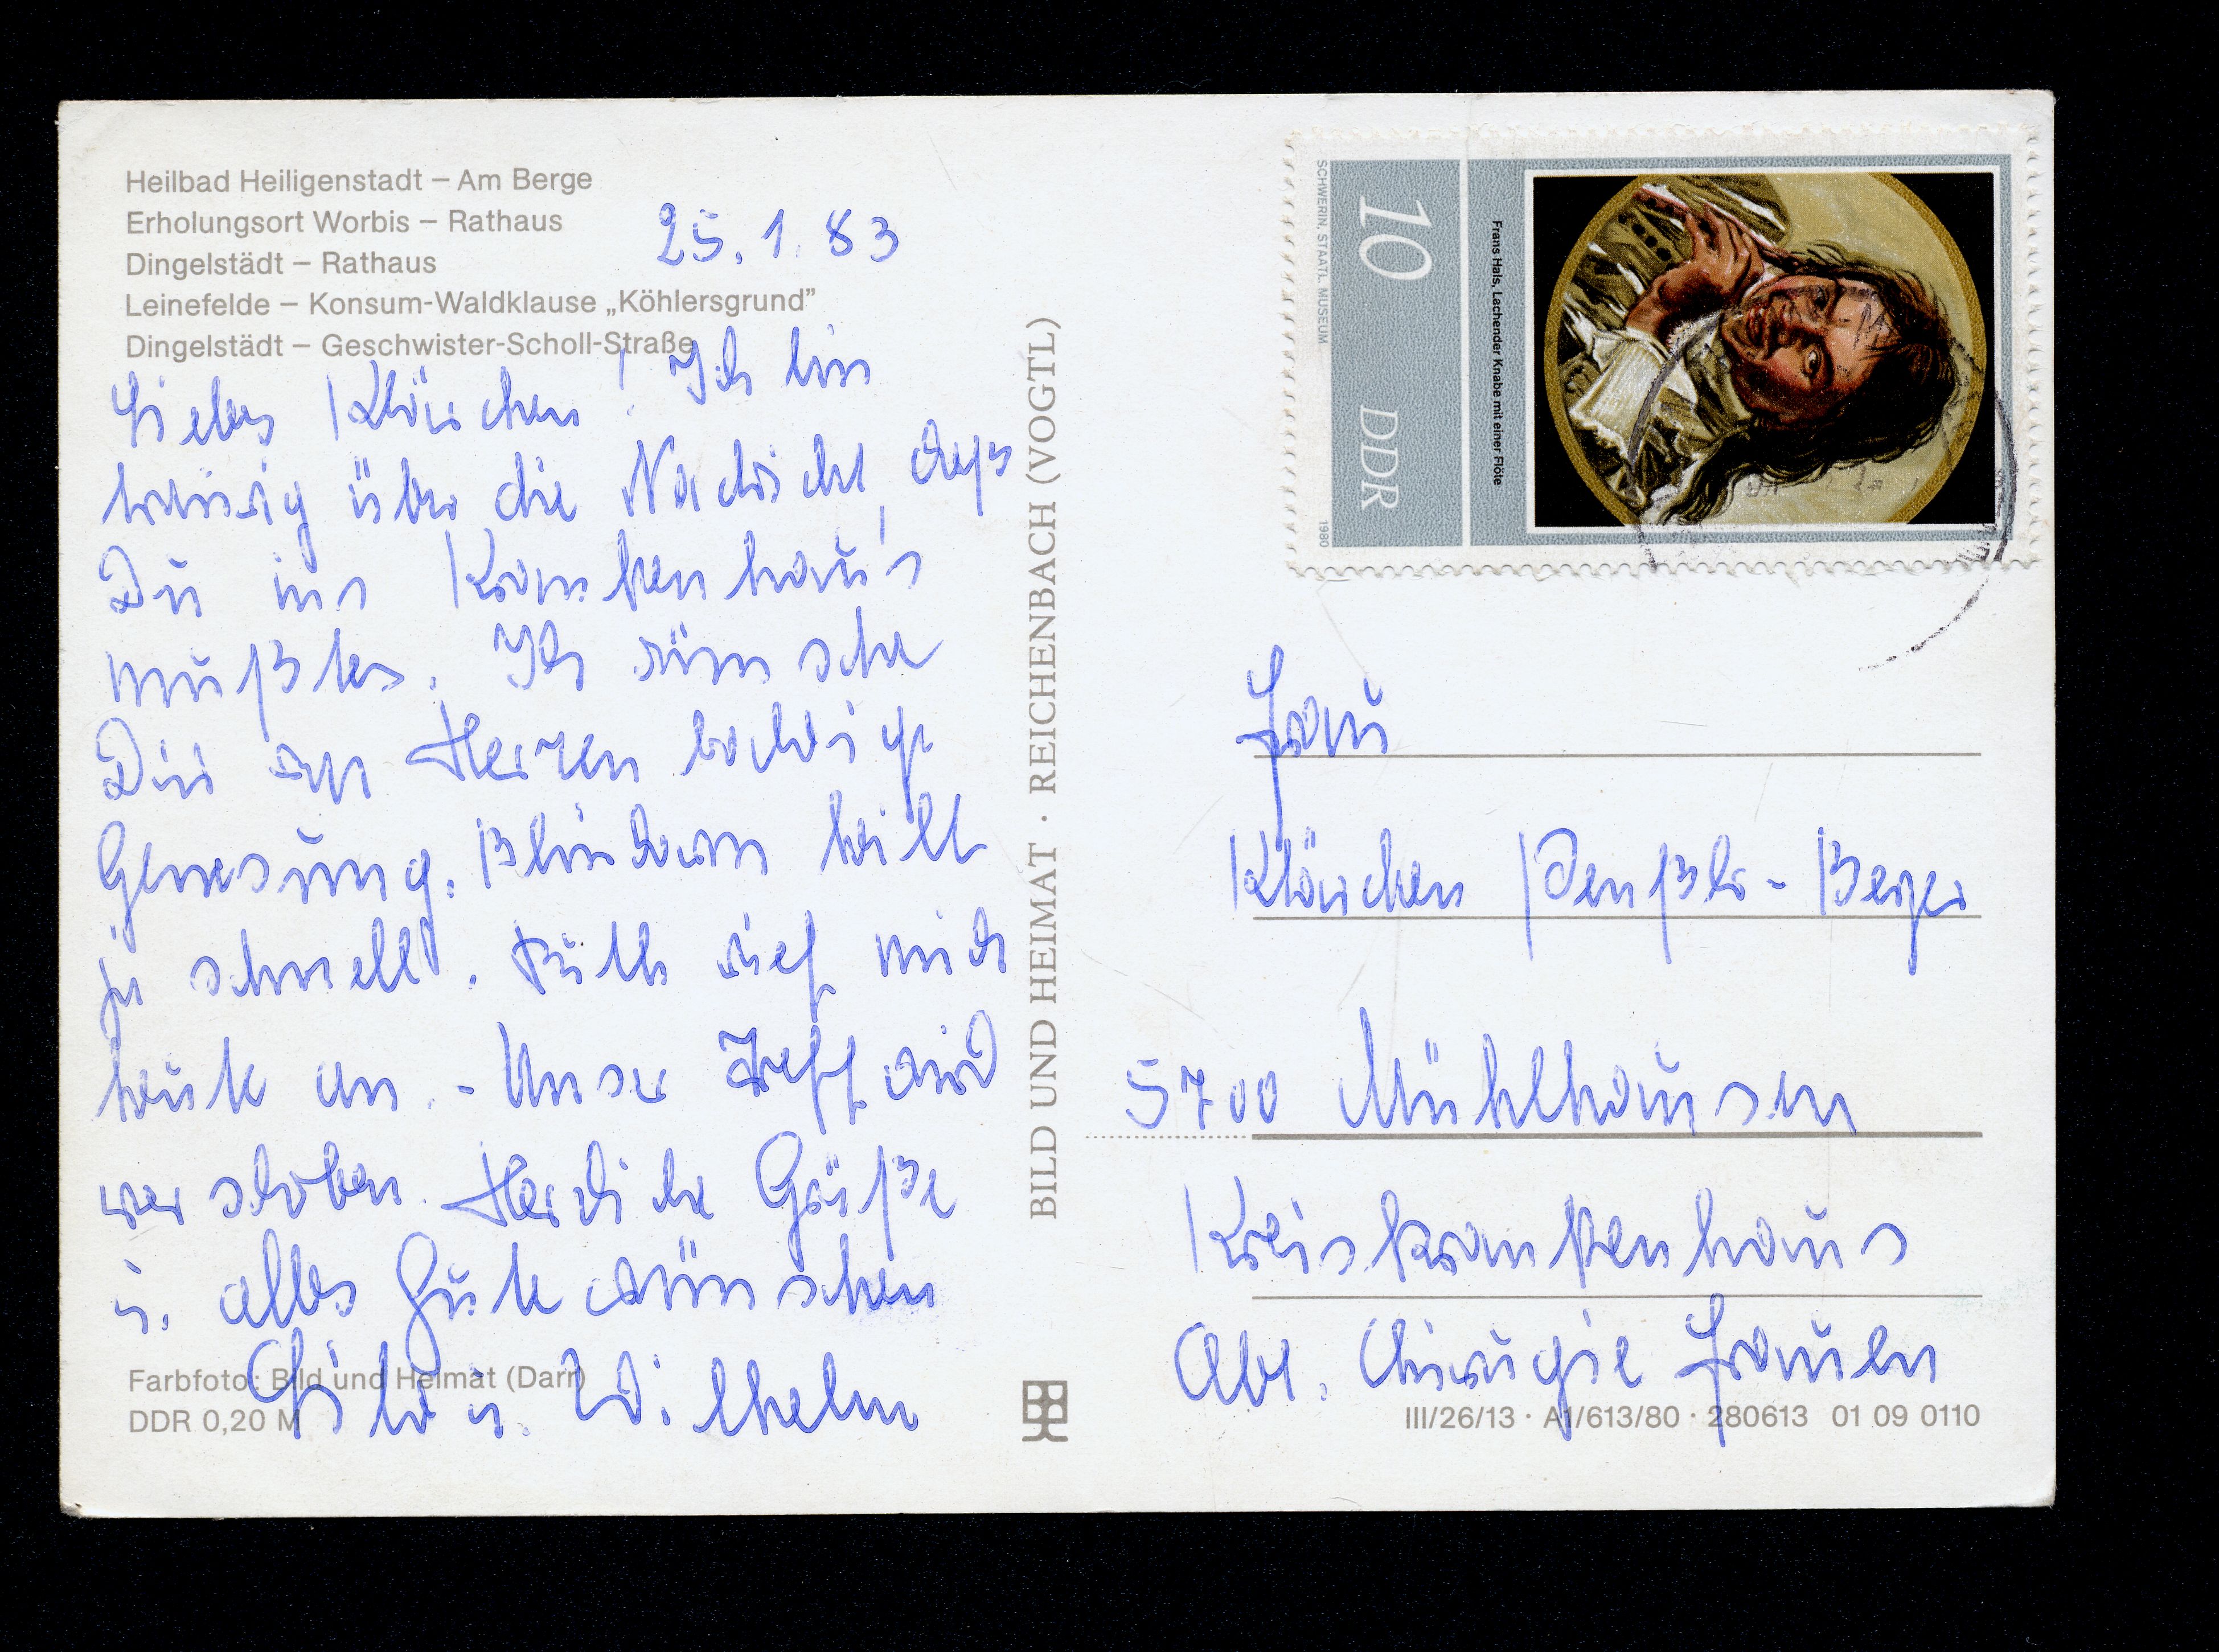 Heilbad Heiligenstadt – Am Berge
Erholungsort Worbis – Rathaus
Dingelstädt – Rathaus
Leinefelde – Konsum-Waldklause „Köhlersgrund”
Dingelstädt – Geschwister-Scholl-Straße
25. 1. 83
Liebes Klärchen! Ich bin
traurig über die Nachricht, daß
Du ins Krankenhaus
mußtes. Ich wünsche
Dir von Herzen baldige
Genesung. Blinddarm heilt
ja schnell. Ruth rief mich
heute an. - Unser Treff wird
verschoben. Herzliche Grüße
u. alles Gute wünschen
u. Wilhelm
Farbfoto: Bild und Heimat (Darr)
DDR 0,20 M
BILD UND HEIMAT · REICHENBACH (VOGTL)
SCHWERIN, STAATL. MUSEUM
1980
10 DDR
Frans Hals, Lachender Knabe mit einer Flöte
Frau
Klärchen
5700 Mühlhausen
Kreiskrankenhaus
Abt. Chirurgie Frauen
III/26/13 · A1/613/80 · 280613 01 09 0110